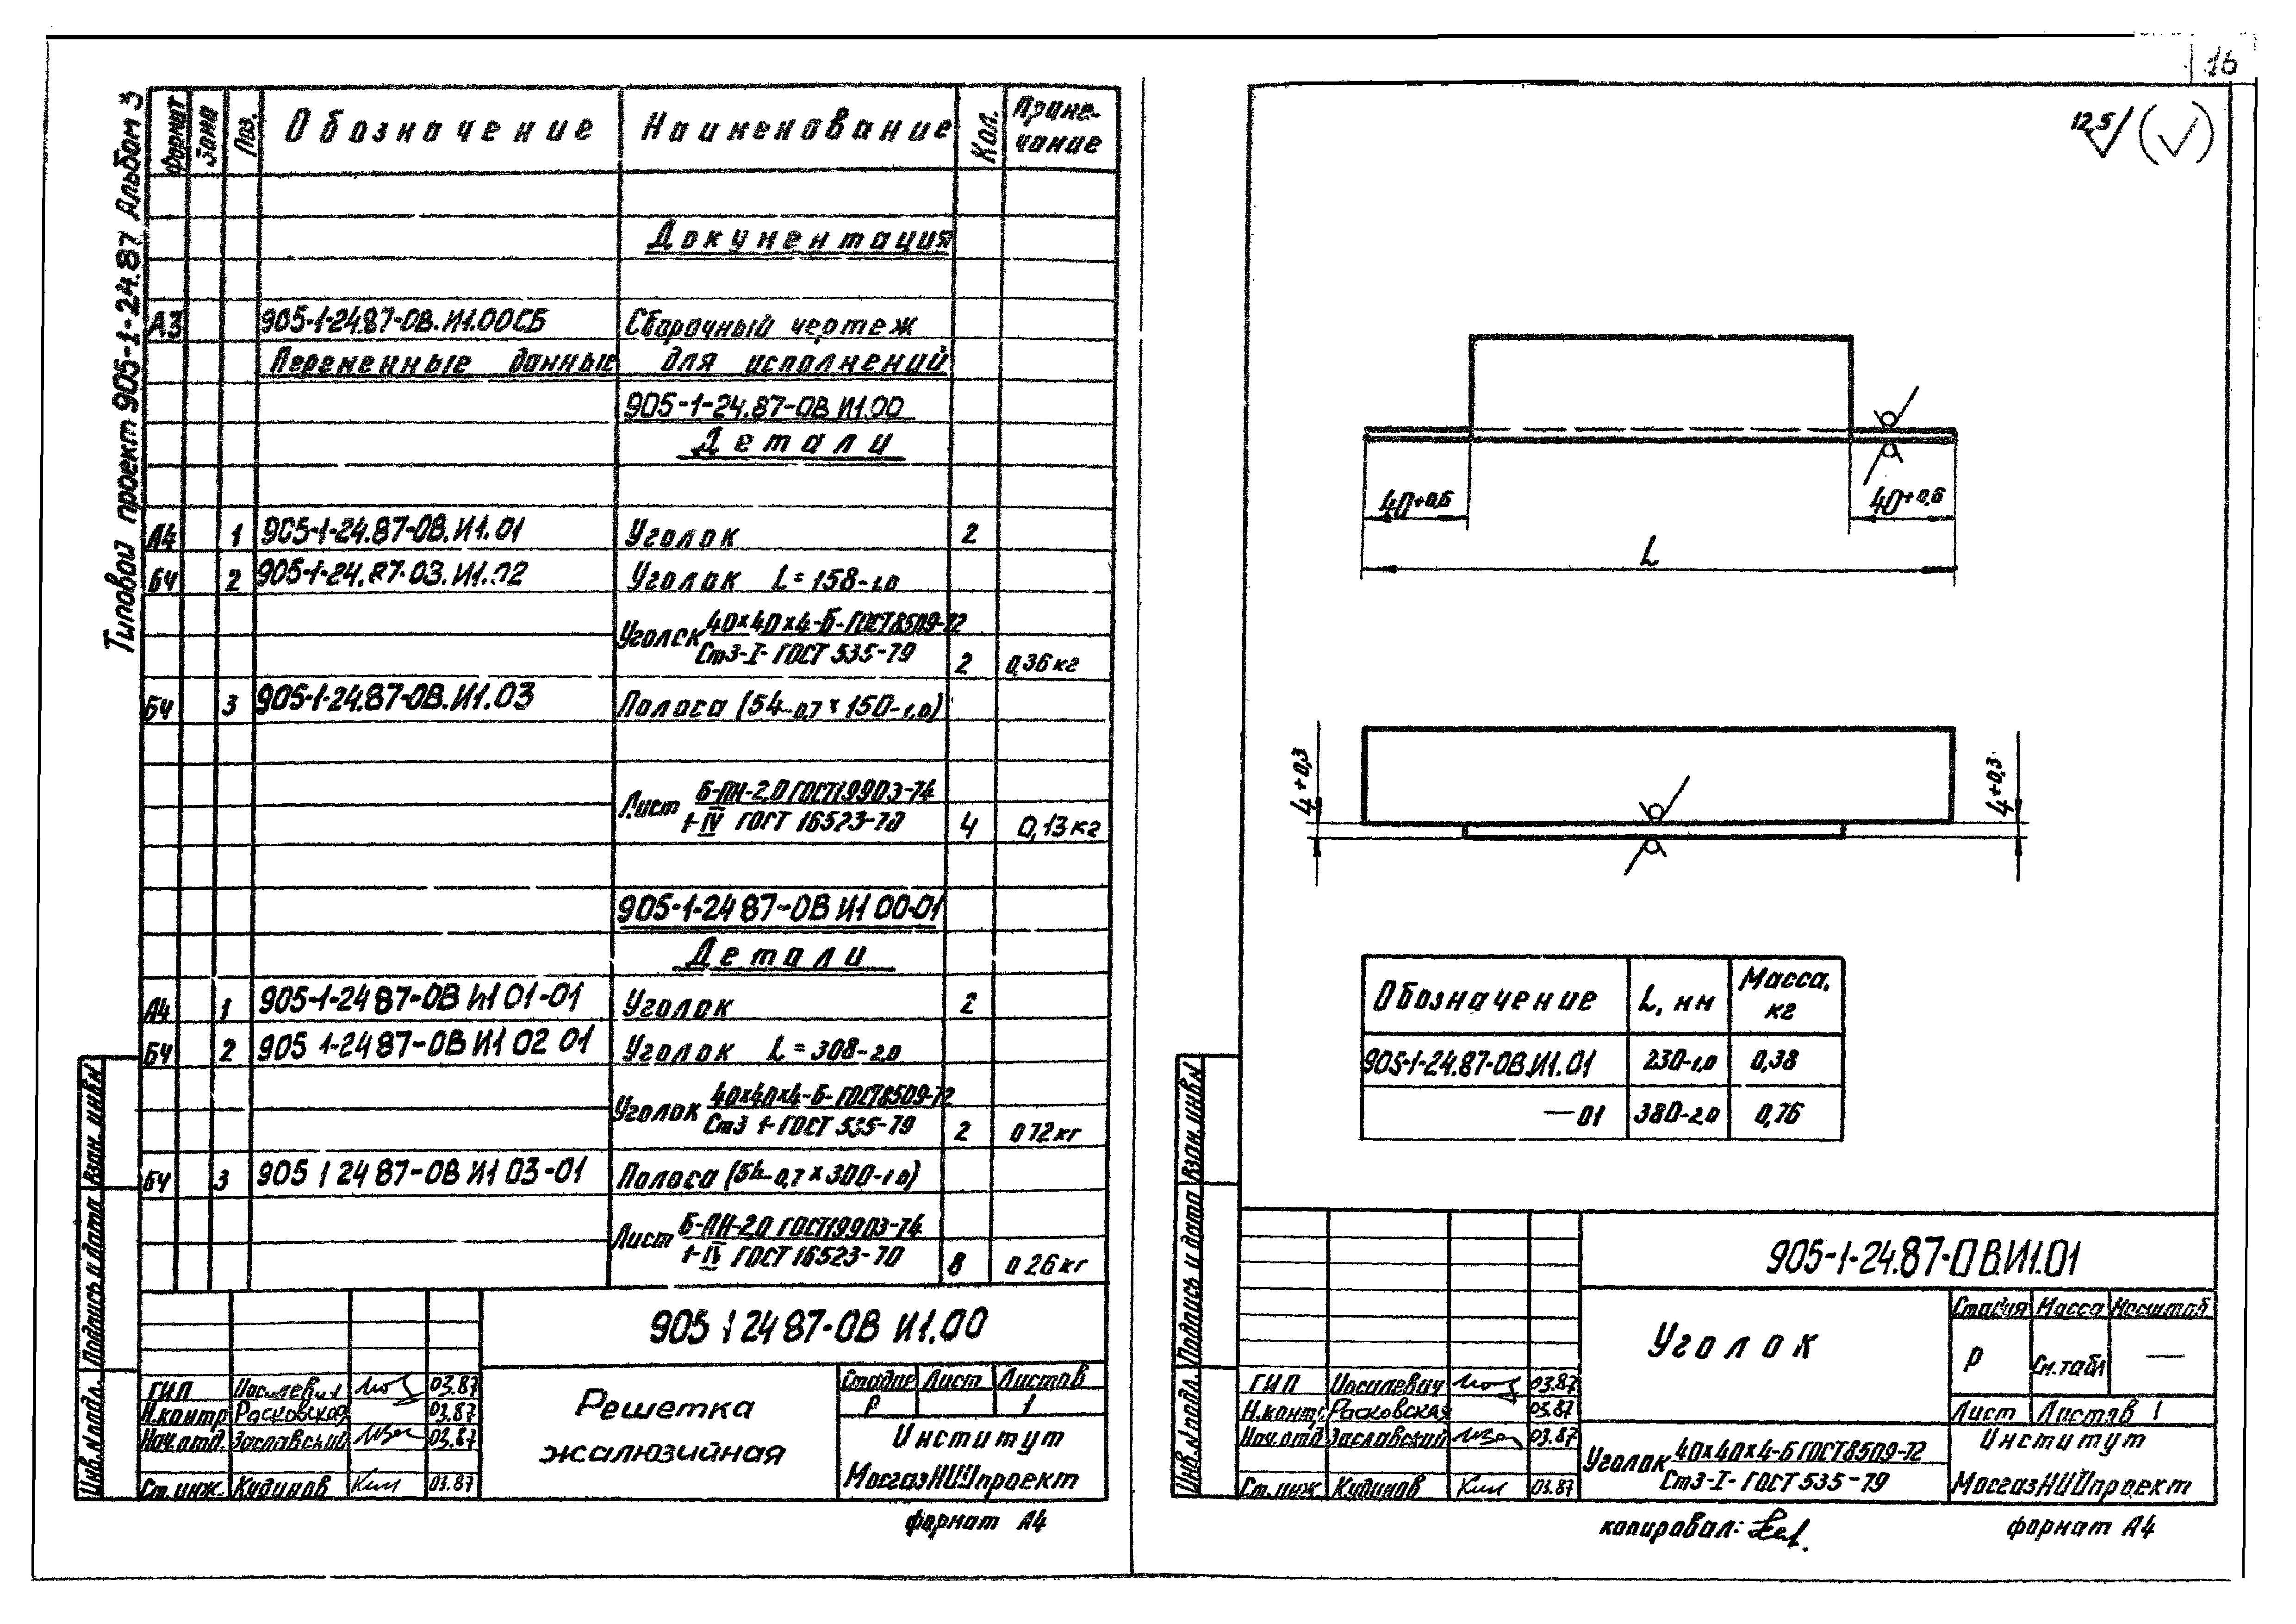 16
Типовой проект 905-1-24.87 Альбом 3
Формат Зона Поз. Обозначение Наименование Кол. Приме-
чание
Документация
А3 905-1-24.87-ОВ.И1.00СБ Сборочный чертеж
Переменные данные для исполнений
905-1-24.87-ОВ И1.00
Детали
А4 1 905-1-24.87-ОВ.И1.01 Уголок 2
БЧ 2 905-1-24.87-03.И1.02 Уголок L=158-1,0
Уголок 40×40×4-Б-ГОСТ8509-72
Ст3-I-ГОСТ 535-79 2 0,36кг
БЧ 3 905-1-24.87-ОВ.И1.03 Полоса (54-0,7×150-1,0)
Лист Б-ПН-2,0 ГОСТ19903-74
1-IV ГОСТ 16523-70 4 0,13кг
905-1-24 87-ОВ И1 00-01
Детали
А4 1 905-1-24 87-ОВ И1 01-01 Уголок 2
БЧ 2 905 1-24 87-ОВ И1 02 01 Уголок L=308-2,0
Уголок 40×40×4-Б-ГОСТ8509-72
Ст3 1-ГОСТ 535-79 2 0 72кг
БЧ 3 905 1 24 87-ОВ И1 03-01 Полоса (54-0,7×300-1 0)
Лист Б-ПН-2,0 ГОСТ19903-74
1-IV ГОСТ 16523-70 8 0 26кг
905 1 24 87-ОВ И1.00
Решетка
жалюзийная
Стадия Лист Листов
Р 1
Институт
МосгазНИИпроект
ГИП Иосилевич 03.87
Н.контр Расковская 03.87
Нач.отд. Заславский 03.87
Ст.инж. Кудинов 03.87
Взам. инв.N
Подпись и дата
Инв.N подл.
формат А4
12,5 (✓)
40+0,6 40+0,6
L
4+0,3 4+0,3
Обозначение L, мм Масса,
кг
905-1-24.87-ОВ.И1.01 230-1,0 0,38
—01 380-2,0 0,76
905-1-24.87-ОВ.И1.01
Уголок
Стадия Масса Масштаб
Р См.табл —
Лист Листов 1
ГИП Иосилевич 03.87
Н.контр. Расковская 03.87
Нач.отд Заславский 03.87
Ст.инж Кудинов 03.87
Уголок 40×40×4-Б ГОСТ8509-72
Ст3-I-ГОСТ 535-79
Институт
МосгазНИИпроект
Взам. инв.N
Подпись и дата
Инв.N подл.
копировал: формат А4